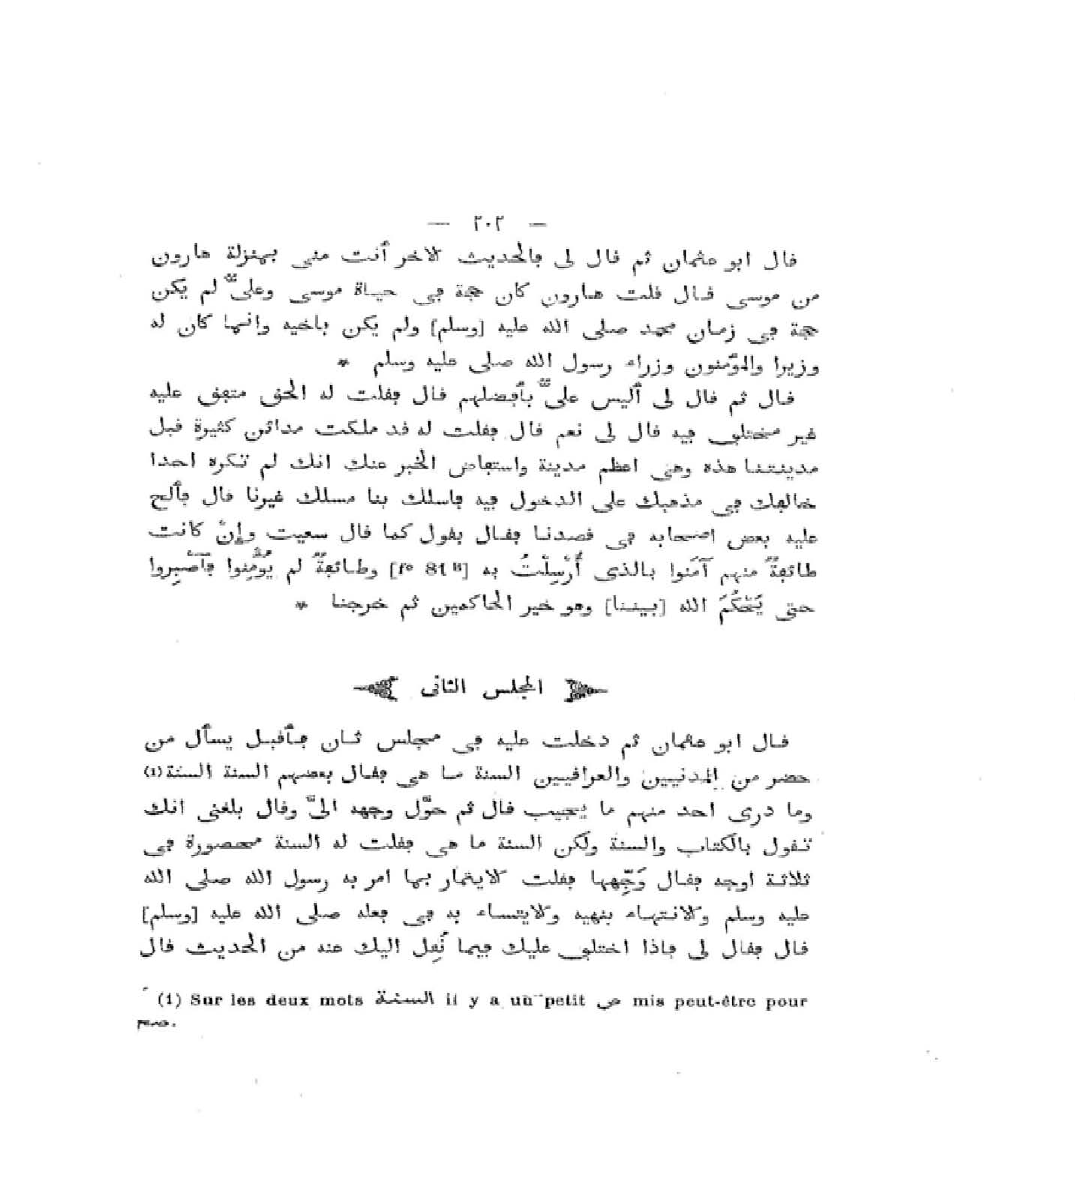 — ٢٠٢ —
قال ابو عثمان ثم قال لى فالحديث الاخر أنت منى بمنزلة هارون
من موسى قال قلت هارون كان حجة فى حياة موسى وعلىّ لم يكن
حجة فى زمان محمد صلى الله عليه [وسلم] ولم يكن باخيه وانما كان له
وزيرا والمؤمنون وزراء رسول الله صلى عليه وسلم *
قال ثم قال لى أليس علىّ بأفضلهم قال فقلت له الحق متفق عليه
غير مختلف فيه قال لى نعم قال فقلت له قد ملكت مدائن كثيرة قبل
مدينتنا هذه وهى اعظم مدينة واستفاض الخبر عنك انك لم تكره احدا
خالفك فى مذهبك على الدخول فيه فاسلك بنا مسلك غيرنا قال فألح
عليه بعض اصحابه فى قصدنا فقال بقول كما قال سعيت وإنْ كانت
طائفةٌ منهم آمَنوا بالذى أُرْسِلْتُ به [f° 81ᴮ] وطائفةٌ لم يُؤْمِنوا فآصْبِروا
حتى يَحْكُمَ الله [بيننا] وهو خير الحاكمين ثم خرجنا *
المجلس الثانى
قال ابو عثمان ثم دخلت عليه فى مجلس ثان فأقبل يسأل من
حضر من المدنيين والعراقيين السنة ما هى فقال بعضهم السنة السنة (1)
وما درى احد منهم ما يُجيب قال ثم حوّل وجهه الىّ وقال بلغنى انك
تقول بالكتاب والسنة ولكن السنة ما هى فقلت له السنة محصورة فى
ثلاثة اوجه فقال وَجِّهها فقلت كلايتمار بما امر به رسول الله صلى الله
عليه وسلم وكلانتهاء بنهيه وكلايتساء به فى فعله صلى الله عليه [وسلم]
قال فقال لى فاذا اختلف عليك فيما نُقِل اليك عنه من الحديث قال
(1) Sur les deux mots السنة il y a un petit ص mis peut-être pour
صح.